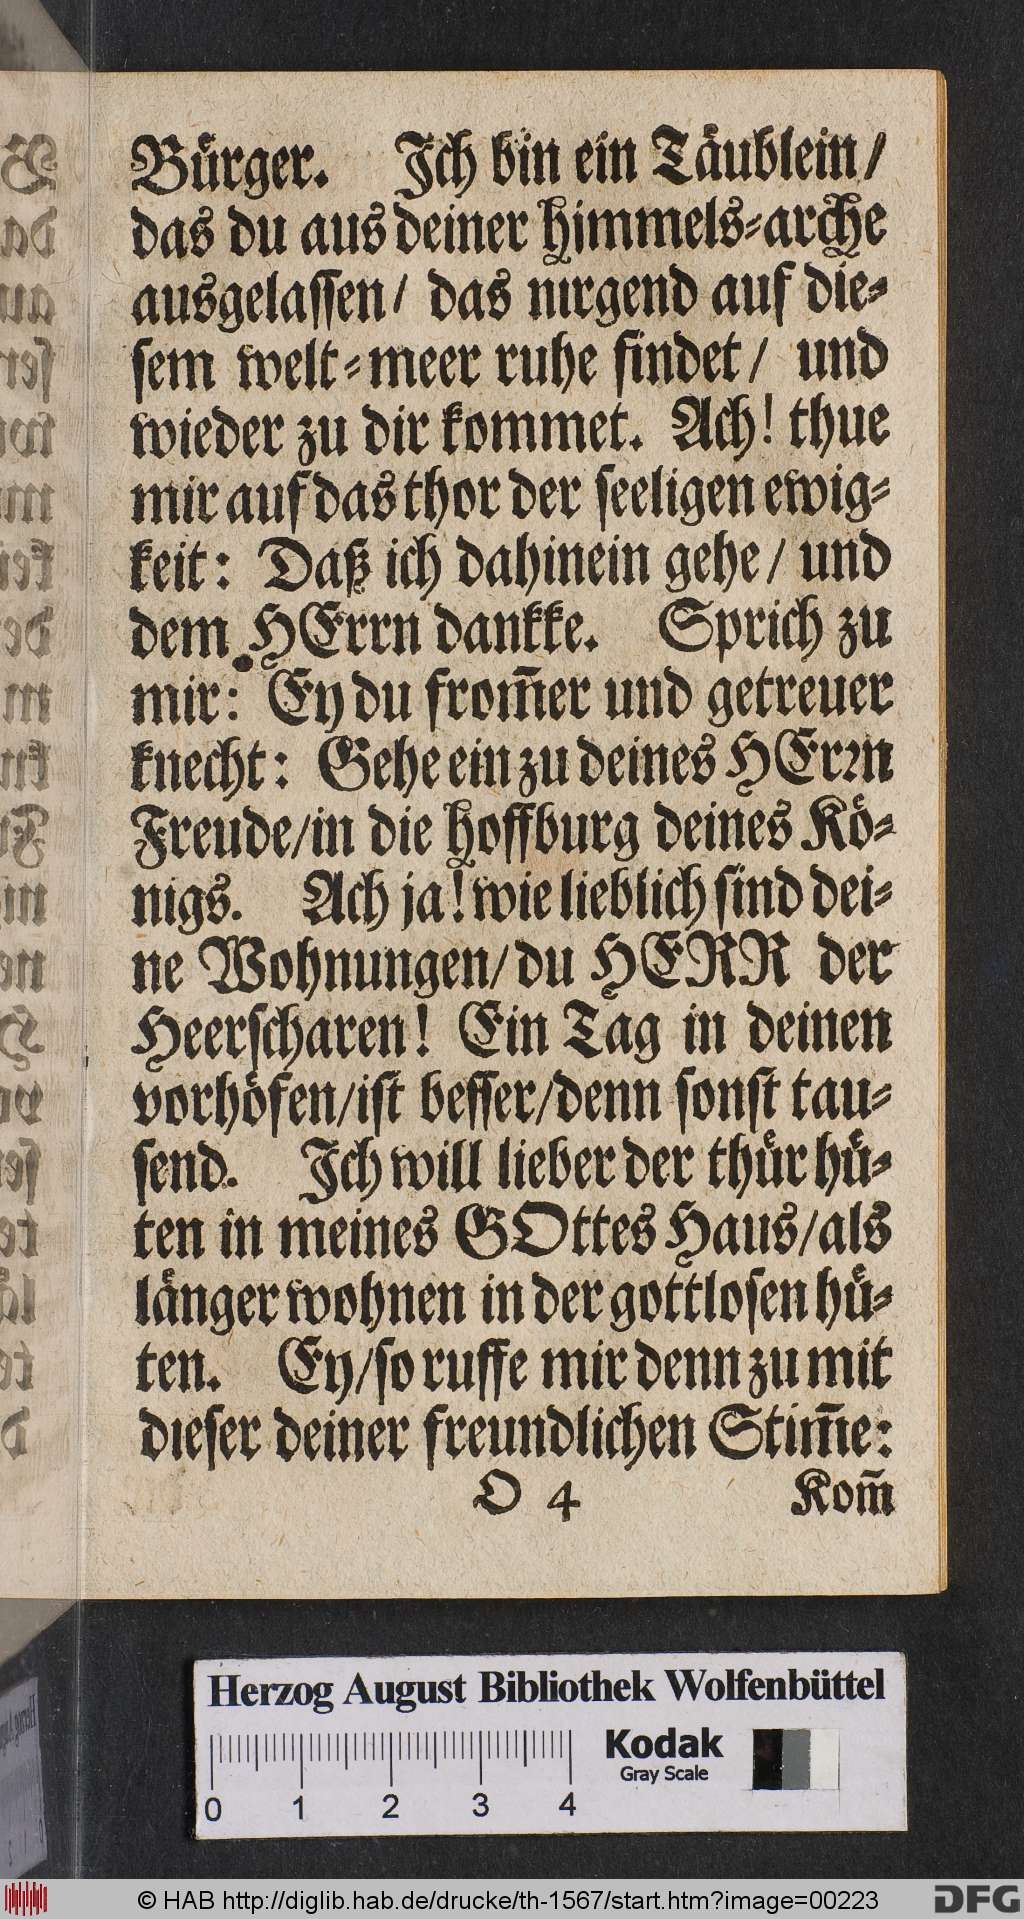 Bürger. Ich bin ein Täublein/
das du aus deiner himmels-arche
ausgelassen/ das nirgend auf die-
sem welt-meer ruhe findet/ und
wieder zu dir kommet. Ach! thue
mir auf das thor der seeligen ewig-
keit: Daß ich dahinein gehe/ und
dem HErrn dankke. Sprich zu
mir: Ey du from̃er und getreuer
knecht: Gehe ein zu deines HErrn
Freude/in die hoffburg deines Kö-
nigs. Ach ja! wie lieblich sind dei-
ne Wohnungen/du HERR der
Heerscharen! Ein Tag in deinen
vorhöfen/ist besser/denn sonst tau-
send. Ich will lieber der thür hü-
ten in meines GOttes Haus/als
länger wohnen in der gottlosen hü-
ten. Ey/so ruffe mir denn zu mit
dieser deiner freundlichen Stim̃e:
O 4 Kom̃
Herzog August Bibliothek Wolfenbüttel
Kodak
Gray Scale
0 1 2 3 4
© HAB http://diglib.hab.de/drucke/th-1567/start.htm?image=00223
DFG